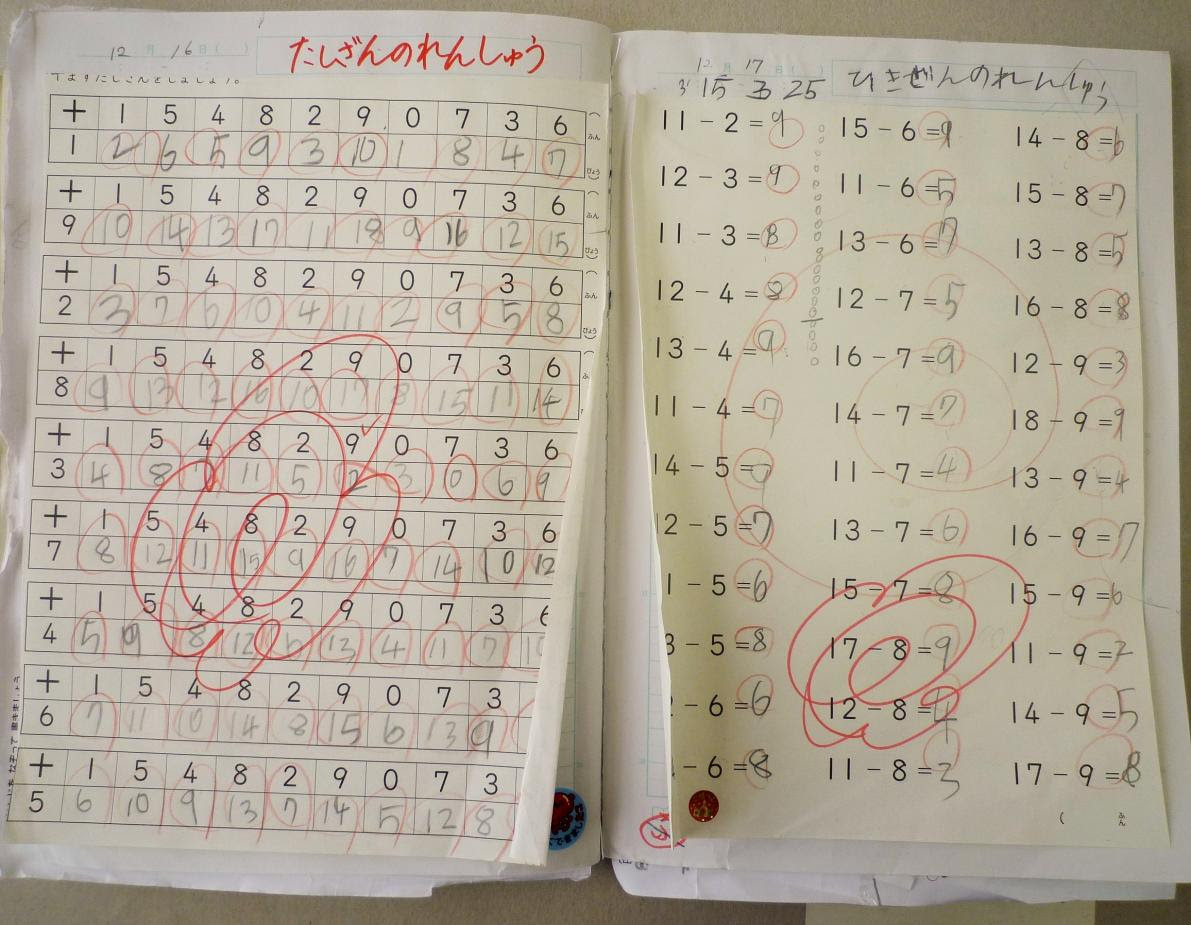 12月 16日( )
たしざんのれんしゅう
+ 1 5 4 8 2 9 0 7 3 6
1 2 6 5 9 3 10 1 8 4 7
+ 1 5 4 8 2 9 0 7 3 6
9 10 14 13 17 11 18 9 16 12 15
+ 1 5 4 8 2 9 0 7 3 6
2 3 7 6 10 4 11 2 9 5 8
+ 1 5 4 8 2 9 0 7 3 6
8 9 13 12 16 10 17 8 15 11 14
+ 1 5 4 8 2 9 0 7 3 6
3 4 8 11 5 12 3 6 9
+ 1 5 4 8 2 9 0 7 3 6
7 8 12 11 15 9 16 7 14 10 12
+ 1 5 4 8 2 9 0 7 3
4 5 9 8 12 13 4 11 7
+ 1 5 4 8 2 9 0 7 3
6 7 11 10 14 8 15 6 13 9
+ 1 5 4 8 2 9 0 7 3
5 6 10 9 13 7 14 5 12 8
12月 17日( )
ひきざんのれんしゅう
15 3 25
11 − 2 = 9
12 − 3 = 9
11 − 3 = 8
12 − 4 = 8
13 − 4 = 9
11 − 4 = 7
14 − 5 = 9
12 − 5 = 7
1 − 5 = 6
3 − 5 = 8
2 − 6 = 6
− 6 = 8
15 − 6 = 9
11 − 6 = 5
13 − 6 = 7
12 − 7 = 5
16 − 7 = 9
14 − 7 = 7
11 − 7 = 4
13 − 7 = 6
15 − 7 = 8
17 − 8 = 9
12 − 8 = 4
11 − 8 = 3
14 − 8 = 6
15 − 8 = 7
13 − 8 = 5
16 − 8 = 8
12 − 9 = 3
18 − 9 = 9
13 − 9 = 4
16 − 9 = 7
15 − 9 = 6
11 − 9 = 2
14 − 9 = 5
17 − 9 = 8
( ふん